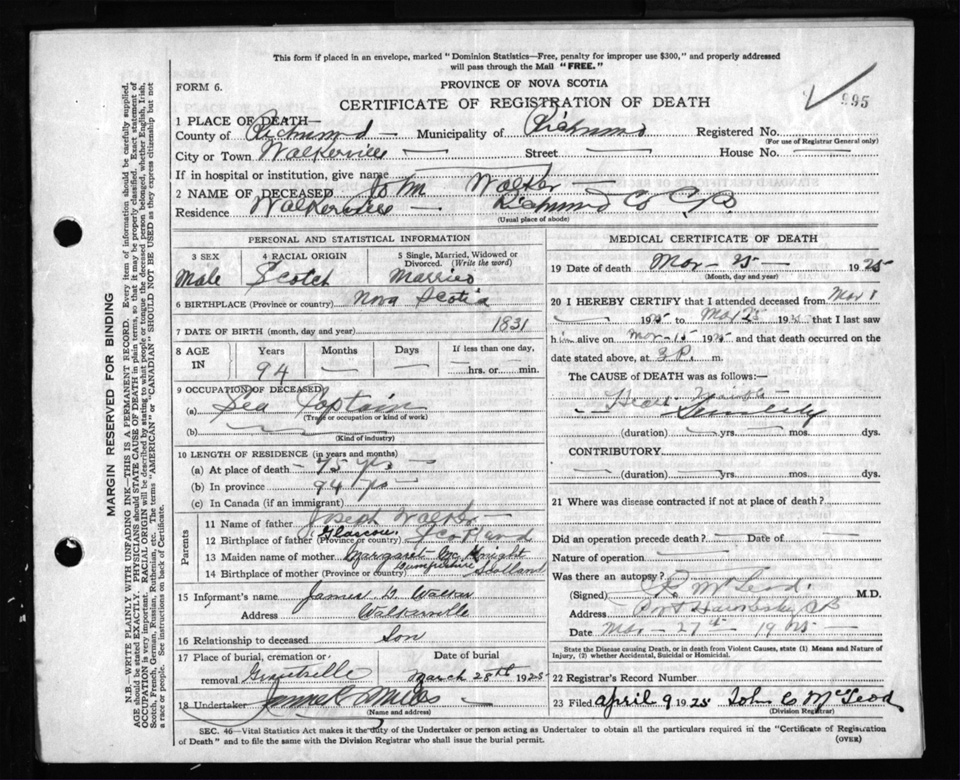 This form if placed in an envelope, marked "Dominion Statistics—Free, penalty for improper use $300," and properly addressed
will pass through the Mail "FREE."
FORM 6.
PROVINCE OF NOVA SCOTIA
CERTIFICATE OF REGISTRATION OF DEATH
995
1 PLACE OF DEATH—
County of Richmond — Municipality of Richmond Registered No.
(For use of Registrar General only)
City or Town Walkerville — Street — House No. —
If in hospital or institution, give name —
2 NAME OF DECEASED John Walker —
Residence Walkerville — Richmond Co C.B.
(Usual place of abode)
MARGIN RESERVED FOR BINDING
N.B.—WRITE PLAINLY WITH UNFADING INK—THIS IS A PERMANENT RECORD. Every item of information should be carefully supplied.
AGE should be stated EXACTLY. PHYSICIANS should STATE CAUSE OF DEATH in plain terms, so that it may be properly classified. Exact statement of
OCCUPATION is very important. RACIAL ORIGIN will be described by stating to what people or tongue the deceased person belonged, whether English, Irish,
Scotch, French, German, Russian, Ruthenian, etc. The terms "AMERICAN" or "CANADIAN" SHOULD NOT BE USED as they express citizenship but not
a race or people. See instructions on back of Certificate.
PERSONAL AND STATISTICAL INFORMATION
3 SEX
Male
4 RACIAL ORIGIN
Scotch
5 Single, Married, Widowed or
Divorced. (Write the word)
Married
6 BIRTHPLACE (Province or country) Nova Scotia
7 DATE OF BIRTH (month, day and year) 1831
8 AGE
IN
Years
94
Months
—
Days
—
If less than one day,
hrs. or min.
9 OCCUPATION OF DECEASED
(a) Sea Captain
(Trade or occupation or kind of work)
(b)
(Kind of industry)
10 LENGTH OF RESIDENCE (in years and months)
(a) At place of death — 75 yrs —
(b) In province 94 yrs
(c) In Canada (if an immigrant)
Parents
11 Name of father Joseph Walker
12 Birthplace of father (Province or country) Glascow Scotland
13 Maiden name of mother Margaret Mc Knight
14 Birthplace of mother (Province or country) Dumfrishire Scotland
15 Informant's name James D. Walker
Address Walkerville
16 Relationship to deceased Son
17 Place of burial, cremation or
removal Grantville
Date of burial
March 28th 1925
18 Undertaker
(Name and address)
MEDICAL CERTIFICATE OF DEATH
19 Date of death Mar — 25 — 1925
(Month, day and year)
20 I HEREBY CERTIFY that I attended deceased from Mar 1
— 1925 to Mar 25 1925 that I last saw
him alive on Mar — 15 1925 and that death occurred on the
date stated above, at 3 P. m.
The CAUSE OF DEATH was as follows:—
Heart
Senility
(duration) yrs. mos. dys.
CONTRIBUTORY
(duration) yrs. mos. dys.
21 Where was disease contracted if not at place of death?
Did an operation precede death? Date of
Nature of operation
Was there an autopsy?
(Signed) McLeod. M.D.
Address Port Hawkesbury CB
Date Mar — 27th 1925 —
State the Disease causing Death, or in death from Violent Causes, state (1) Means and Nature of
Injury, (2) whether Accidental, Suicidal or Homicidal.
22 Registrar's Record Number
23 Filed April 9 1925 John C McLeod
(Division Registrar)
SEC. 46—Vital Statistics Act makes it the duty of the Undertaker or person acting as Undertaker to obtain all the particulars required in the "Certificate of Registration
of Death" and to file the same with the Division Registrar who shall issue the burial permit. (OVER)